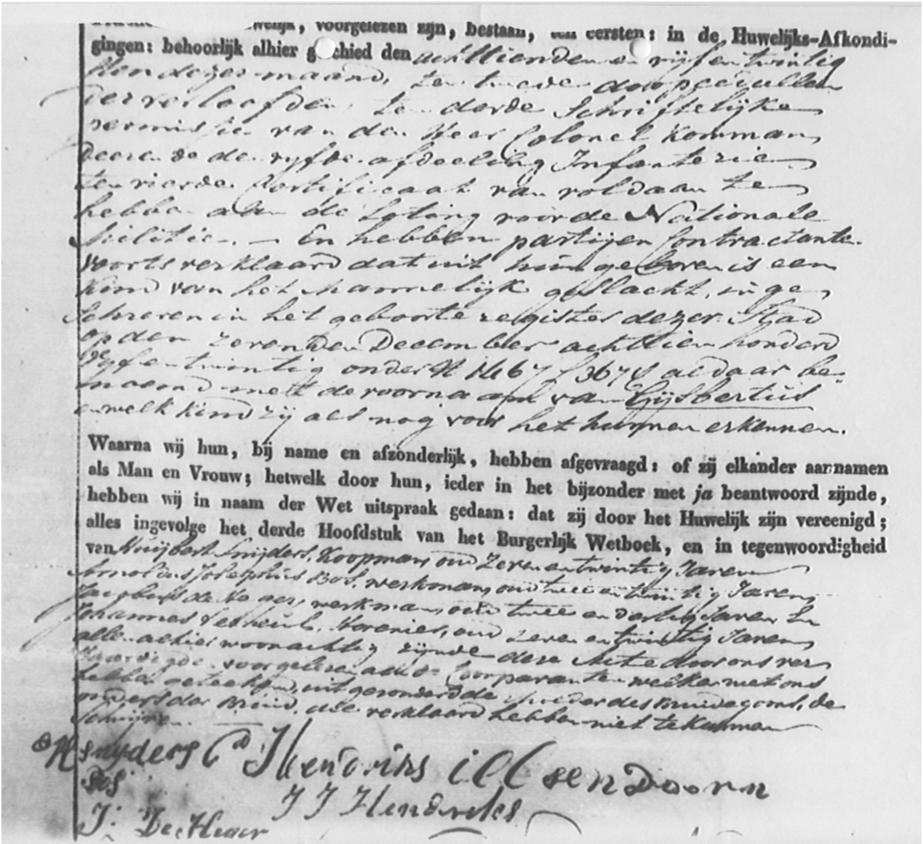 voorgelezen zijn, bestaan, ten eersten: in de Huwelijks-Afkondi-
gingen: behoorlijk alhier geschied den achttienden en vijfentwintig
sten dezer maand, ten tweede
der verloofden ten derde Schriftelijke
permissie van den Heer Colonel Komman,
deerende de vyfde afdeeling Infanterie
ten vierde Certificaat van voldaan te
hebben aan de Loting voor de Nationale
Militie. — En hebben partijen Contractante
voorts verklaard dat uit hun geboren is een
kind van het mannelijk geslacht, inge
schreven in het geboorte register dezer Stad
op den zevenden December achttien honderd
vyfentwintig onder N 1467 / 3678 aldaar be-
noemd met de voornaam van Gijsbertus
welk kind zij als nog voor het hunne erkennen.
Waarna wij hun, bij name en afzonderlijk, hebben afgevraagd: of zij elkander aannamen
als Man en Vrouw; hetwelk door hun, ieder in het bijzonder met ja beantwoord zijnde,
hebben wij in naam der Wet uitspraak gedaan: dat zij door het Huwelijk zijn vereenigd;
alles ingevolge het derde Hoofdstuk van het Burgerlijk Wetboek, en in tegenwoordigheid
van Huijbert Snijders, Koopman, oud Zevenentwintig Jaren
Arnoldus Josephus Bos, werkman, oud twee entwintig Jaren,
Jacobus de Heger, werkman, oud twee en dertig Jaren En
Johannes oud zeven entwintig Jaren
allen alhier woonachtig zijnde deze Acte door ons ver
vaardigd, voorgelezen aan de Comparanten welke met ons
hebben geteekend, uitgezonderd de Moeder des Bruidegoms, de
ouders der Bruid, die verklaard hebben niet te kunnen
Schrijven
H Snyders Hendriks illsendoorn
Bos J J Hendricks
J: De Heger